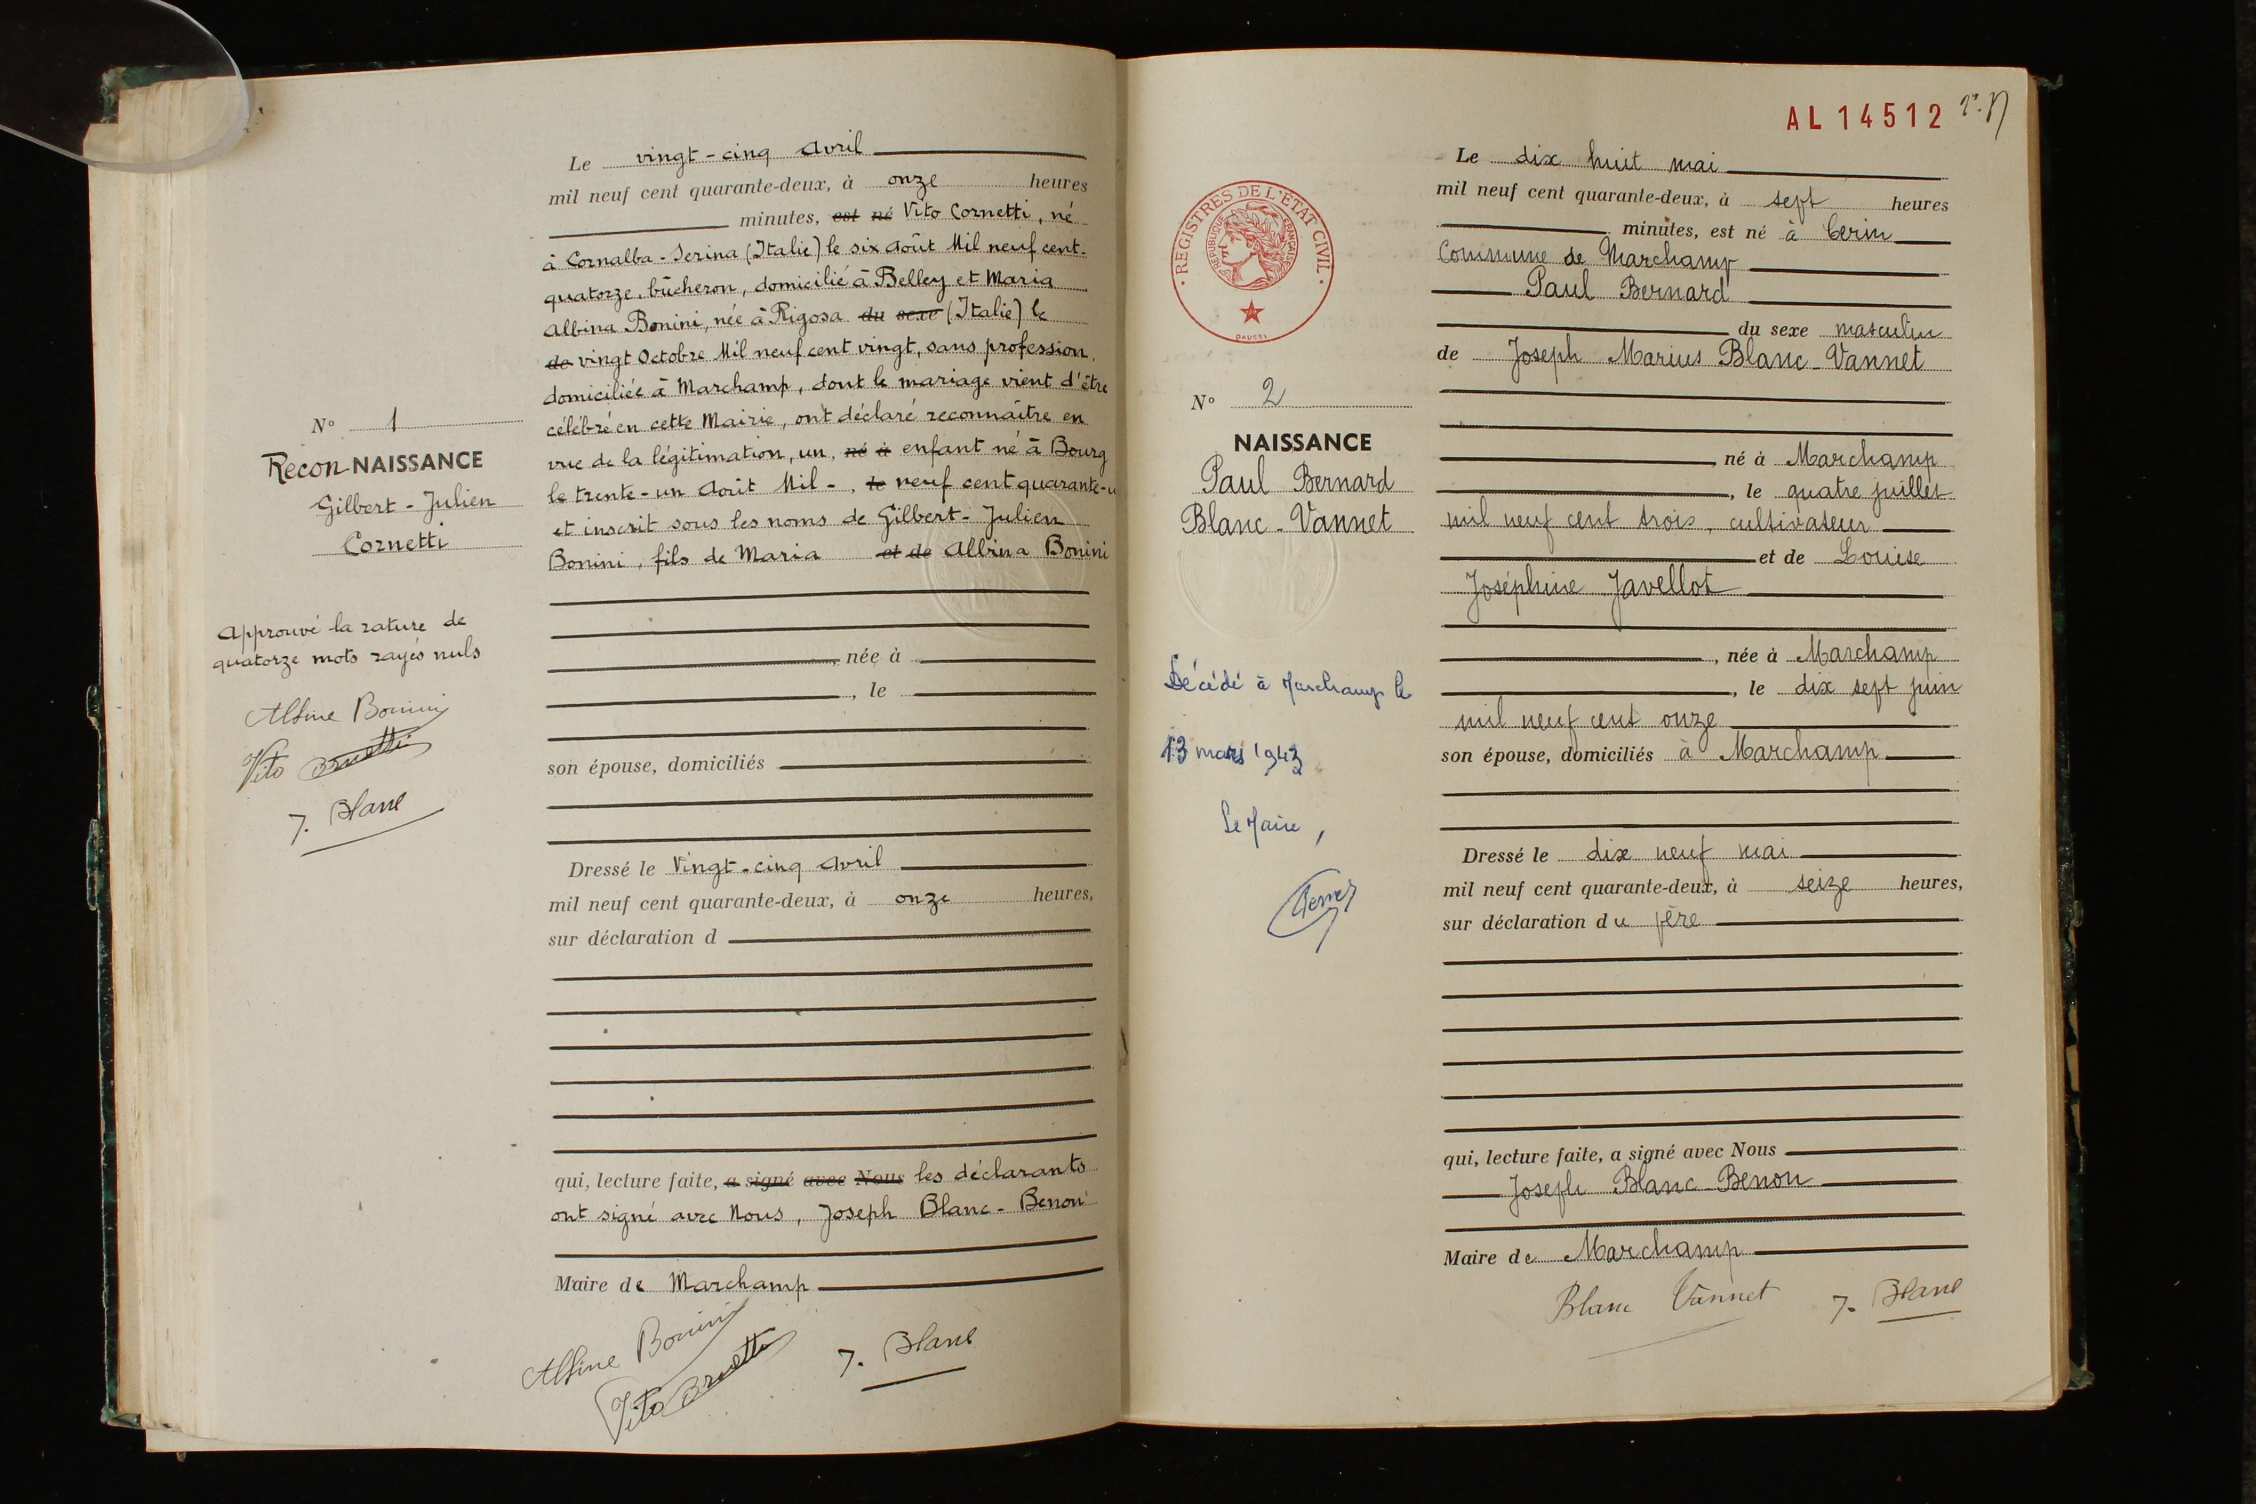 Le vingt-cinq avril
mil neuf cent quarante-deux, à onze heures
minutes, est né Vito Cornetti, né
à Cornalba-Serina (Italie) le six août Mil neuf cent.
quatorze, bûcheron, domicilié à Belley et Maria
Albina Bonini, née à Rigosa du sexe (Italie) le
de vingt Octobre Mil neuf cent vingt, sans profession,
domiciliée à Marchamp, dont le mariage vient d'être
célébré en cette Mairie, ont déclaré reconnaître en
vue de la légitimation, un, né à enfant né à Bourg
le trente-un août Mil-, le neuf cent quarante-u
et inscrit sous les noms de Gilbert-Julien
Bonini, fils de Maria et de Albina Bonini
, née à
, le
son épouse, domiciliés
Dressé le Vingt-cinq avril
mil neuf cent quarante-deux, à onze heures,
sur déclaration d
qui, lecture faite, a signé avec Nous les déclarants
ont signé avec Nous, Joseph Blanc-Benon
Maire de Marchamp
Albine Bonini
Vito Cornetti
J. Blanc
N° 1
Recon NAISSANCE
Gilbert-Julien
Cornetti
Approuvé la rature de
quatorze mots rayés nuls
Albine Bonini
Vito Cornetti
J. Blanc
AL 14512
REGISTRES DE L'ÉTAT CIVIL
RÉPUBLIQUE FRANÇAISE
N° 2
NAISSANCE
Paul Bernard
Blanc-Vannet
Décédé à Marchamp le
13 mars 1943
Le Maire,
Le dix huit mai
mil neuf cent quarante-deux, à sept heures
minutes, est né à Cerin
Commune de Marchamp
Paul Bernard
du sexe masculin
de Joseph Marius Blanc-Vannet
né à Marchamp
, le quatre juillet
mil neuf cent trois, cultivateur
et de Louise
Joséphine Javellot
, née à Marchamp
, le dix sept juin
mil neuf cent onze
son épouse, domiciliés à Marchamp
Dressé le dix neuf mai
mil neuf cent quarante-deux, à seize heures,
sur déclaration du père
qui, lecture faite, a signé avec Nous
Joseph Blanc-Benon
Maire de Marchamp
Blanc Vannet J. Blanc